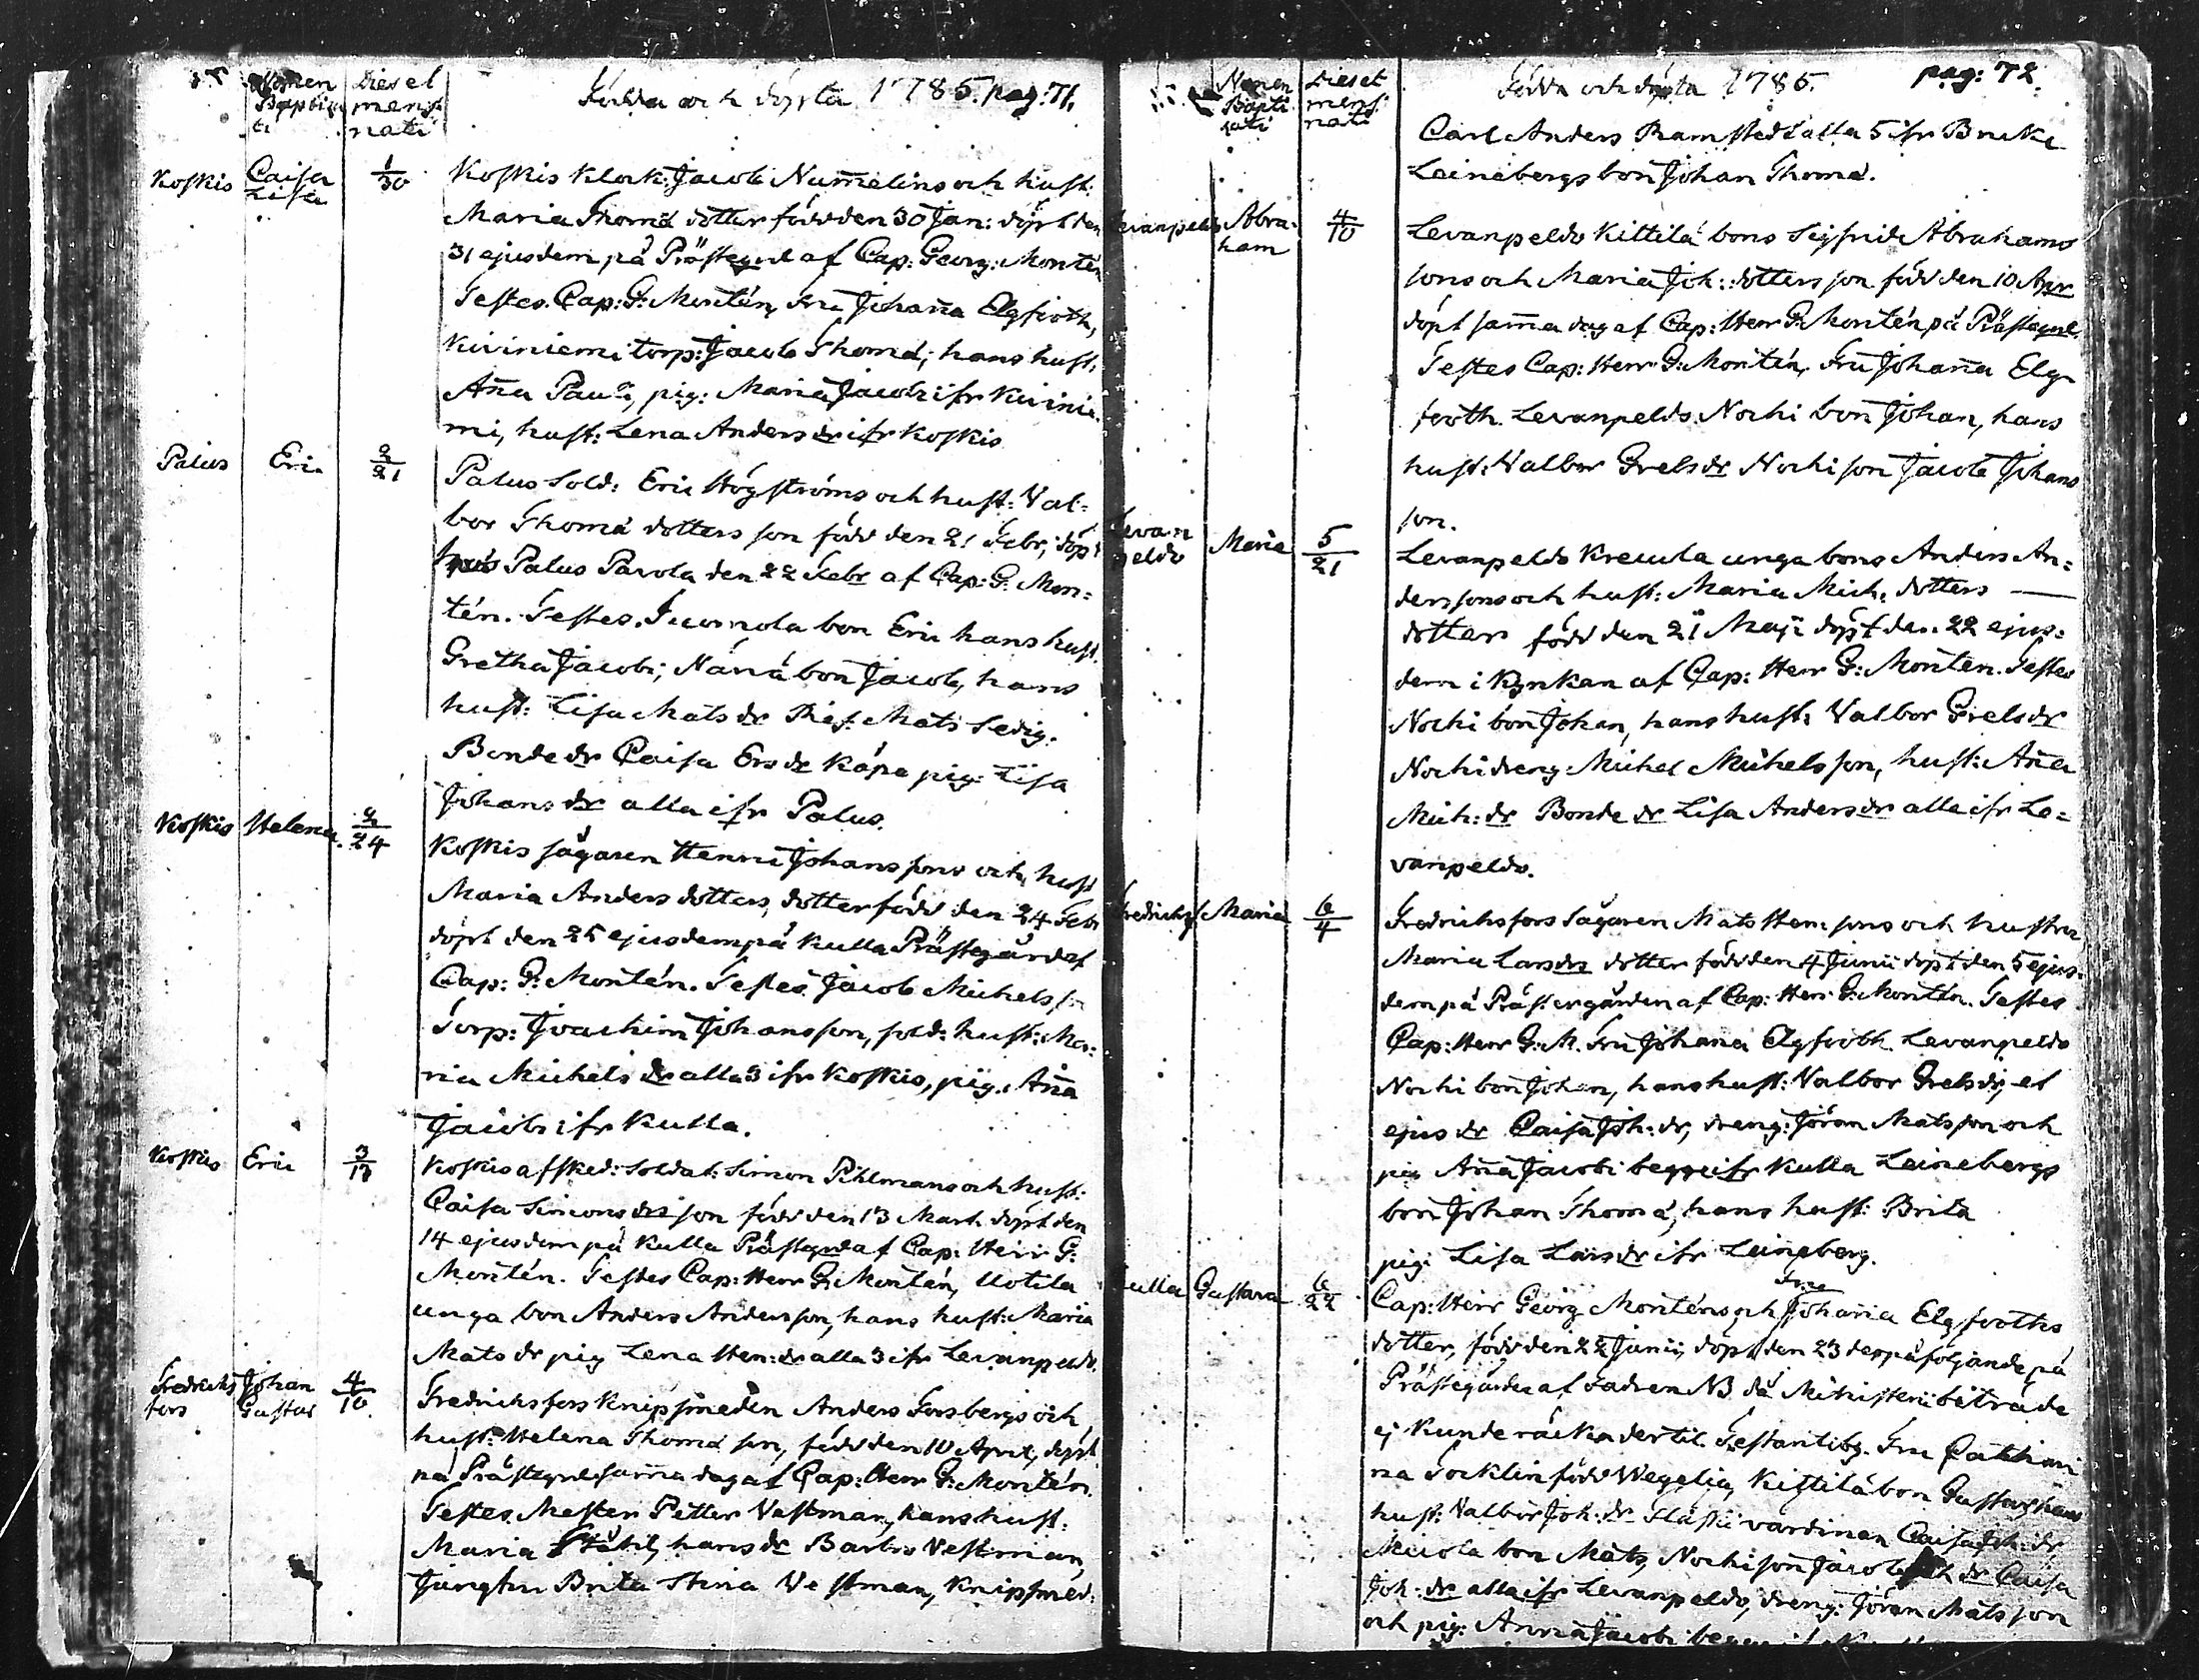 Nomen Baptizati
Dies et mens: nati
Födda och döpta 1785. pag: 71.
Koskis
Caisa Lisa
1/30
Koskis Klock: Jacob Num̄elins och hust:
Maria Thomæ dotter född den 30 Jan: döpt den
31 ejusdem på Prästegrd af Cap: Georg: Montén
Testes. Cap: G: Montén, Fru Johan̄a Elgforth,
Kiviniemi torp: Jacob Thomæ, hans hust:
An̄a Pauli, pig: Maria Jacobi ifr Kivinie
mi, hust: Lena Anders dr ifr Koskis
Palus
Eric
2/21
Palus Sold: Eric Högströms och hust: Val-
bor Thomæ dotters son född den 21 Febr, döpt
Palus Pavola den 22 Febr af Cap: G: Mon-
tén. Testes. bon Eric hans hust.
Gretha Jacobi; Nänä bon Jacob, hans
hust: Lisa Mats dr Mats
Bonde dr Caisa Ers dr pig: Lisa
Johans dr alla ifr Palus.
Koskis
Helena.
2/24
Koskis sågaren Henric Johanssons och hust
Maria Anders dotters, dotter född den 24 Febr
döpt den 25 ejusdem på Kulla Prästegård af
Cap: G: Montén. Testes Jacob Michelsson
Torp: Joachim Johansson, sold: hust: Ma-
ria Michels dr alla 3 ifr Koskis, pig: An̄a
Jacobi ifr Kulla.
Koskis
Eric
3/13
Koskis afsked: Soldat: Simon Pihlmans och hust:
Caisa Simons drs son född den 13 Mart. döpt den
14 ejusdem på Kulla Prästegrd af Cap: Herr G:
Montén. Testes Cap: Herr G: Montén, Uotila
unga bon Anders Andersson, hans hust: Maria
Mats dr pig Lena Hen: dr alla 3 ifr Levanpeldo.
Fredrichsfors
Johan Gustav
4/10
Fredrichsfors Knipsmeden Anders Forsbergs och
hust: Helena Thomæ son, född den 10 April, döpt
på Prästegrd sam̄a dag af Cap: Herr G: Montén.
Testes. Mester Petter Vestman, hans hust:
Maria Ståhl, hans dr Barbro Vestman,
Jungfru Brita Stina Vestman, Knipsmed:
Nomen Baptizati
Dies et mens: nati
Födda och döpta 1785.
pag: 72.
Carl Anders Ramsted alla 5 ifr Bruket
Leinebergs bon Johan Thomæ.
Levanpeldo
Abraham
4/10
Levanpeldo Kittilä bons Sigfrid Abrahams
sons och Maria Joh: dotters son född den 10 Apr
döpt sam̄a dag af Cap: Herr G: Montén på Prästegrd.
Testes Cap: Herr G: Montén, Fru Johan̄a Elg
forth. Levanpeldo Nochi bon Johan, hans
hust: Valbor Grels dr Nochi son Jacob Johans
son.
Levanpeldo
Maria
5/21
Levanpeldo Kreula unga bons Anders An-
derssons och hust: Maria Mich: dotters —
dotter född den 21 Maji döpt den 22 ejus-
dem i Kyrkan af Cap: Herr G: Montén. Testes
Nochi bon Johan, hans hust: Valbor Grels dr
Nochi dreng: Michel Michelsson, hust: An̄a
Mich: dr Bonde dr Lisa Anders dr alla ifr Le-
vanpeldo.
Fredrichsf
Maria
6/4
Fredrichsfors Sågaren Mats Hen: sons och hustru
Maria Lars drs dotter född den 4 Junii döpt den 5 ejus-
dem på Prästergården af Cap: Herr G: Montén. Testes
Cap: Herr G: M. Fru Johan̄a Elgforth. Levanpeldo
Nochi bon Johan, hans hust: Valbor Grels dr, et
ejus dr Caisa Joh: dr, dreng: Jöran Matsson och
pig An̄a Jacobi begge ifr Kulla Leinebergs
bon Johan Thomæ, hans hust: Brita
pig: Lisa Lars dr ifr Leineberg.
Kulla
Gustava
6/22
Cap: Herr Georg Monténs och Fru Johan̄a Elgforths
dotter, född den 22 Junii, döpt den 23 derpåföljande på
Prästegården af Fadren NB. då Ministerii biträde
ej kunde räcka dertil. Testantibg. Fru Cathari
na Tocklin född Wegelia, Kittilä bon Gustav, hans
hust: Valbor Joh: dr värdinan Caisa Joh: dr
bon Mats, Nochi son Jacob och dr Caisa
Joh: dr alla ifr Levanpeldo, dreng: Jöran Matsson
och pig: Anna Jacobi begge